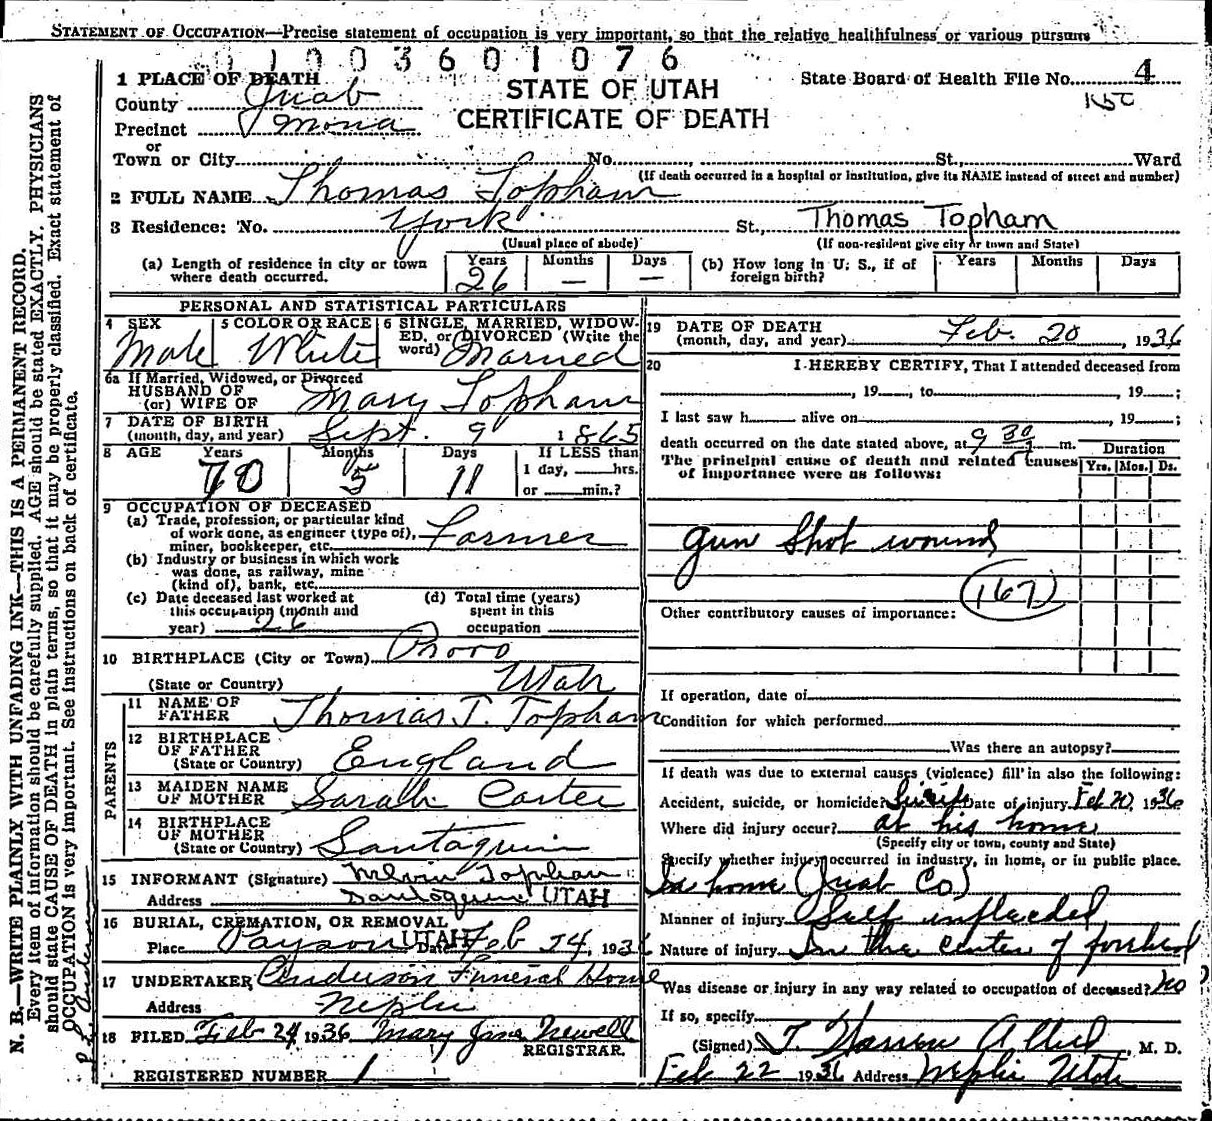 STATEMENT OF OCCUPATION—Precise statement of occupation is very important, so that the relative healthfulness or various pursuits
01003601076
1 PLACE OF DEATH
County Juab
Precinct Mona
or
Town or City
STATE OF UTAH
CERTIFICATE OF DEATH
State Board of Health File No. 4
No. , St., Ward
(If death occurred in a hospital or institution, give its NAME instead of street and number)
2 FULL NAME Thomas Topham
3 Residence: No. York St., Thomas Topham
(Usual place of abode) (If non-resident give city or town and State)
(a) Length of residence in city or town where death occurred. Years 26 Months — Days —
(b) How long in U. S., if of foreign birth? Years Months Days
PERSONAL AND STATISTICAL PARTICULARS
4 SEX Male
5 COLOR OR RACE White
6 SINGLE, MARRIED, WIDOWED, or DIVORCED (Write the word) Married
6a If Married, Widowed, or Divorced
HUSBAND OF
(or) WIFE OF Mary Topham
7 DATE OF BIRTH
(month, day, and year) Sept. 9 1865
8 AGE Years 70 Months 5 Days 11
If LESS than
1 day, hrs.
or min.?
9 OCCUPATION OF DECEASED
(a) Trade, profession, or particular kind
of work done, as engineer (type of),
miner, bookkeeper, etc. Farmer
(b) Industry or business in which work
was done, as railway, mine
(kind of), bank, etc.
(c) Date deceased last worked at
this occupation (month and
year) 26
(d) Total time (years)
spent in this
occupation
10 BIRTHPLACE (City or Town) Provo
(State or Country) Utah
PARENTS
11 NAME OF
FATHER Thomas T. Topham
12 BIRTHPLACE
OF FATHER
(State or Country) England
13 MAIDEN NAME
OF MOTHER Sarah Carter
14 BIRTHPLACE
OF MOTHER
(State or Country) Santaquin
15 INFORMANT (Signature) Melvin Topham
Address Santaquin UTAH
16 BURIAL, CREMATION, OR REMOVAL
Place Payson UTAH Date Feb 24, 1936
17 UNDERTAKER Anderson Funeral Home
Address Nephi
18 FILED Feb 24 1936 Mary Jane Newell
REGISTRAR.
REGISTERED NUMBER 1
19 DATE OF DEATH
(month, day, and year) Feb. 20, 1936
20 I HEREBY CERTIFY, That I attended deceased from
, 19 , to , 19 ;
I last saw h alive on , 19 ;
death occurred on the date stated above, at 9 30 m.
The principal cause of death and related causes
of importance were as follows:
Duration
Yrs. Mos. Ds.
gun shot wound
167
Other contributory causes of importance:
If operation, date of
Condition for which performed
Was there an autopsy?
If death was due to external causes (violence) fill in also the following:
Accident, suicide, or homicide? Date of injury Feb 20, 1936
Where did injury occur? at his home
(Specify city or town, county and State)
Specify whether injury occurred in industry, in home, or in public place.
In home (Juab Co)
Manner of injury Self inflected
Nature of injury In the center of forehead
Was disease or injury in any way related to occupation of deceased? no
If so, specify
(Signed) , M. D.
Feb 22 1936 Address Nephi Utah
N. B.—WRITE PLAINLY WITH UNFADING INK—THIS IS A PERMANENT RECORD.
Every item of information should be carefully supplied. AGE should be stated EXACTLY. PHYSICIANS
should state CAUSE OF DEATH in plain terms, so that it may be properly classified. Exact statement of
OCCUPATION is very important. See instructions on back of certificate.